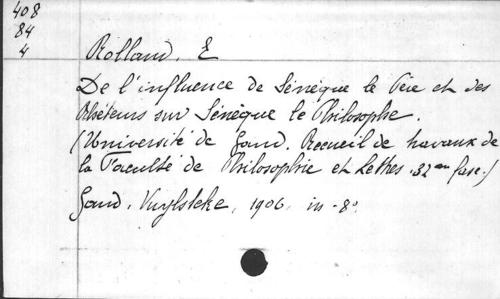 408
84
4
Rolland, E
De l'influence de Sénèque le Père et des
Rhéteurs sur Sénèque le Philosophe.
(Université de Gand. Recueil de travaux de
la Faculté de Philosophie et Lettres. 32me fasc.)
Gand, Vuylsteke, 1906, in-8o